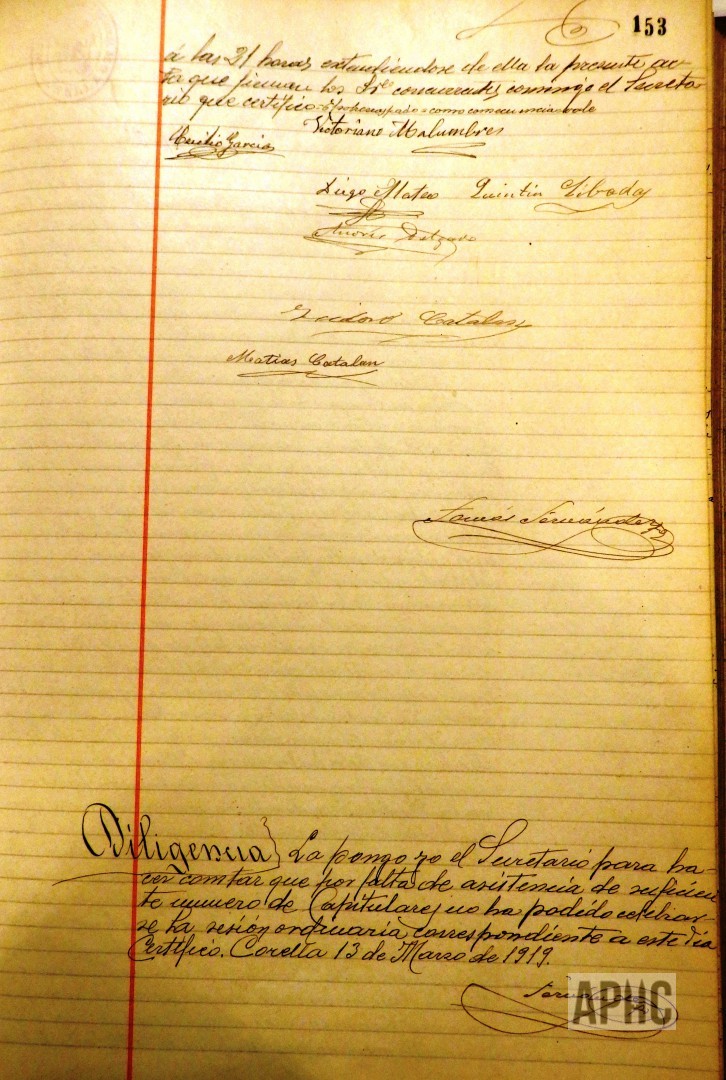 153
á las 21 horas extendiendose de ella la presente ac-
ta que firman los Sres concurrentes conmigo el Secreta-
rio que certifico = como consecuencia = vale
Emilio Garcia
Victoriano Malumbres
Diego Mateo Quintin
Andrés Delgado
Isidoro Catalan
Matias Catalan
Tomás Fernández
Diligencia } La pongo yo el Secretario para ha-
cer constar que por falta de asistencia de suficien-
te numero de Capitulares no ha podido celebrar-
se la sesión ordinaria correspondiente a este dia
Certifico. Corella 13 de Marzo de 1919.
Fernández
APHC